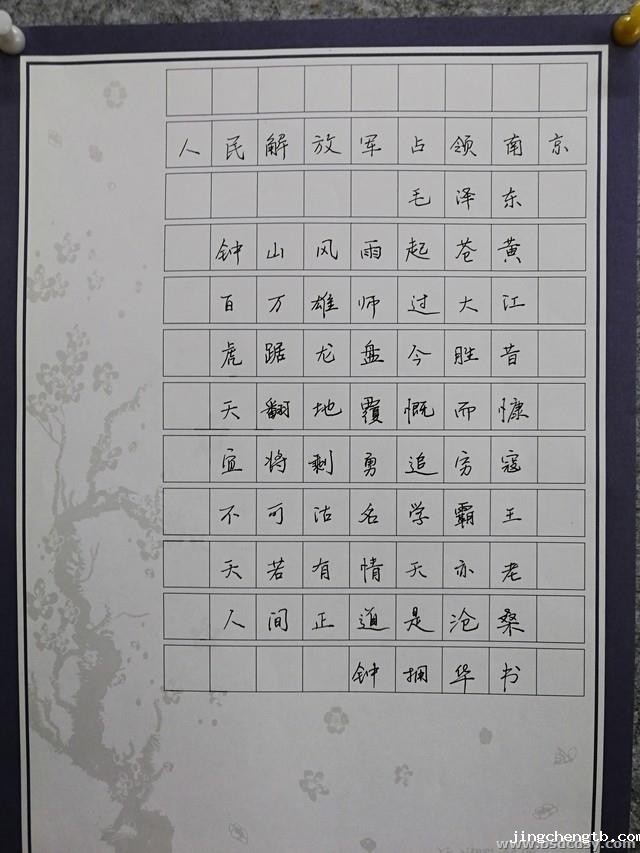 人民解放军占领南京
毛泽东
钟山风雨起苍黄
百万雄师过大江
虎踞龙盘今胜昔
天翻地覆慨而慷
宜将剩勇追穷寇
不可沽名学霸王
天若有情天亦老
人间正道是沧桑
钟拥华书
jingchengtb.com
www.bsdcdsy.com